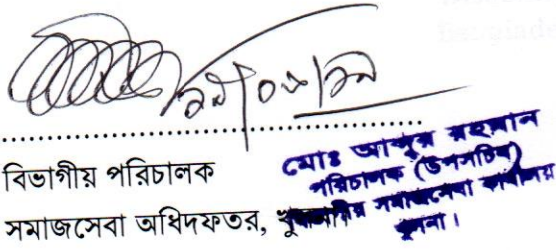 ২৭/০৬/১৯
বিভাগীয় পরিচালক
সমাজসেবা অধিদফতর, খুলনা
মোঃ আব্দুর রহমান
পরিচালক (উপসচিব)
বিভাগীয় সমাজসেবা কার্যালয়
খুলনা।